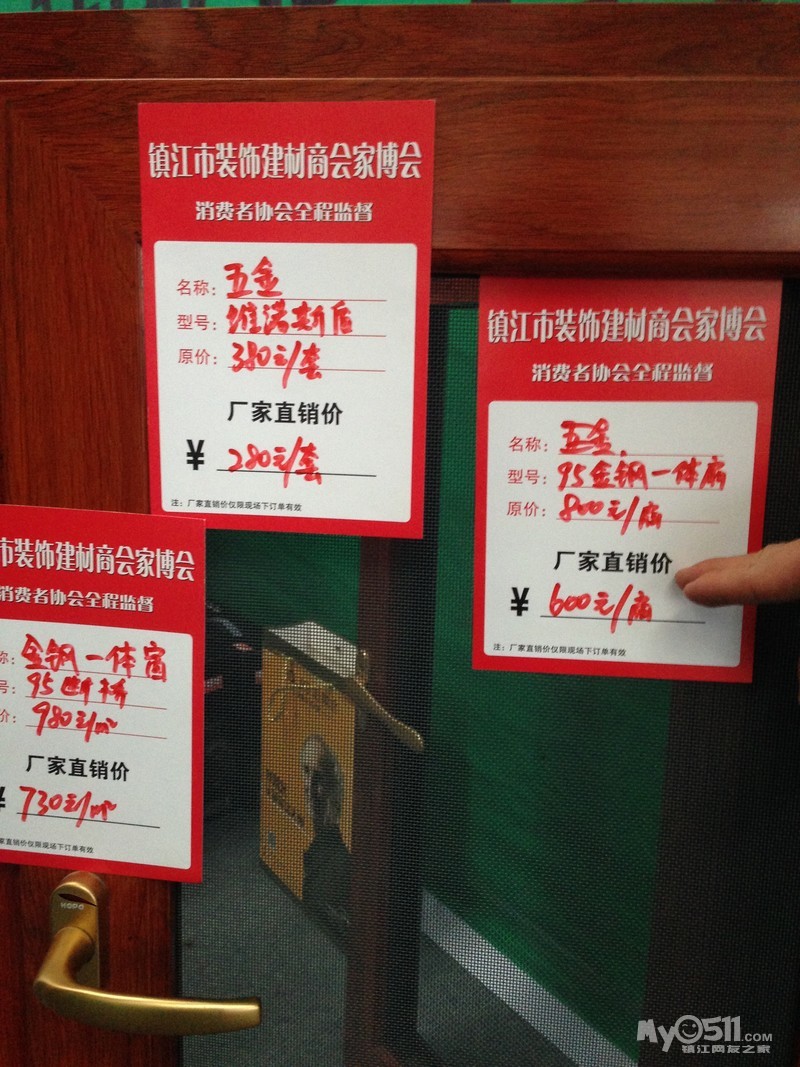 镇江市装饰建材商会家博会
消费者协会全程监督
名称：五金
型号：
原价：380元/套
厂家直销价
¥ 280元/套
注：厂家直销价仅限现场下订单有效
镇江市装饰建材商会家博会
消费者协会全程监督
名称：五金
型号：95金钢一体扇
原价：800元/扇
厂家直销价
¥ 600元/扇
注：厂家直销价仅限现场下订单有效
市装饰建材商会家博会
消费者协会全程监督
称：金钢一体窗
号：95断桥
价：980元/㎡
厂家直销价
¥ 730元/㎡
家直销价仅限现场下订单有效
HOPO
My0511.COM
镇江网友之家